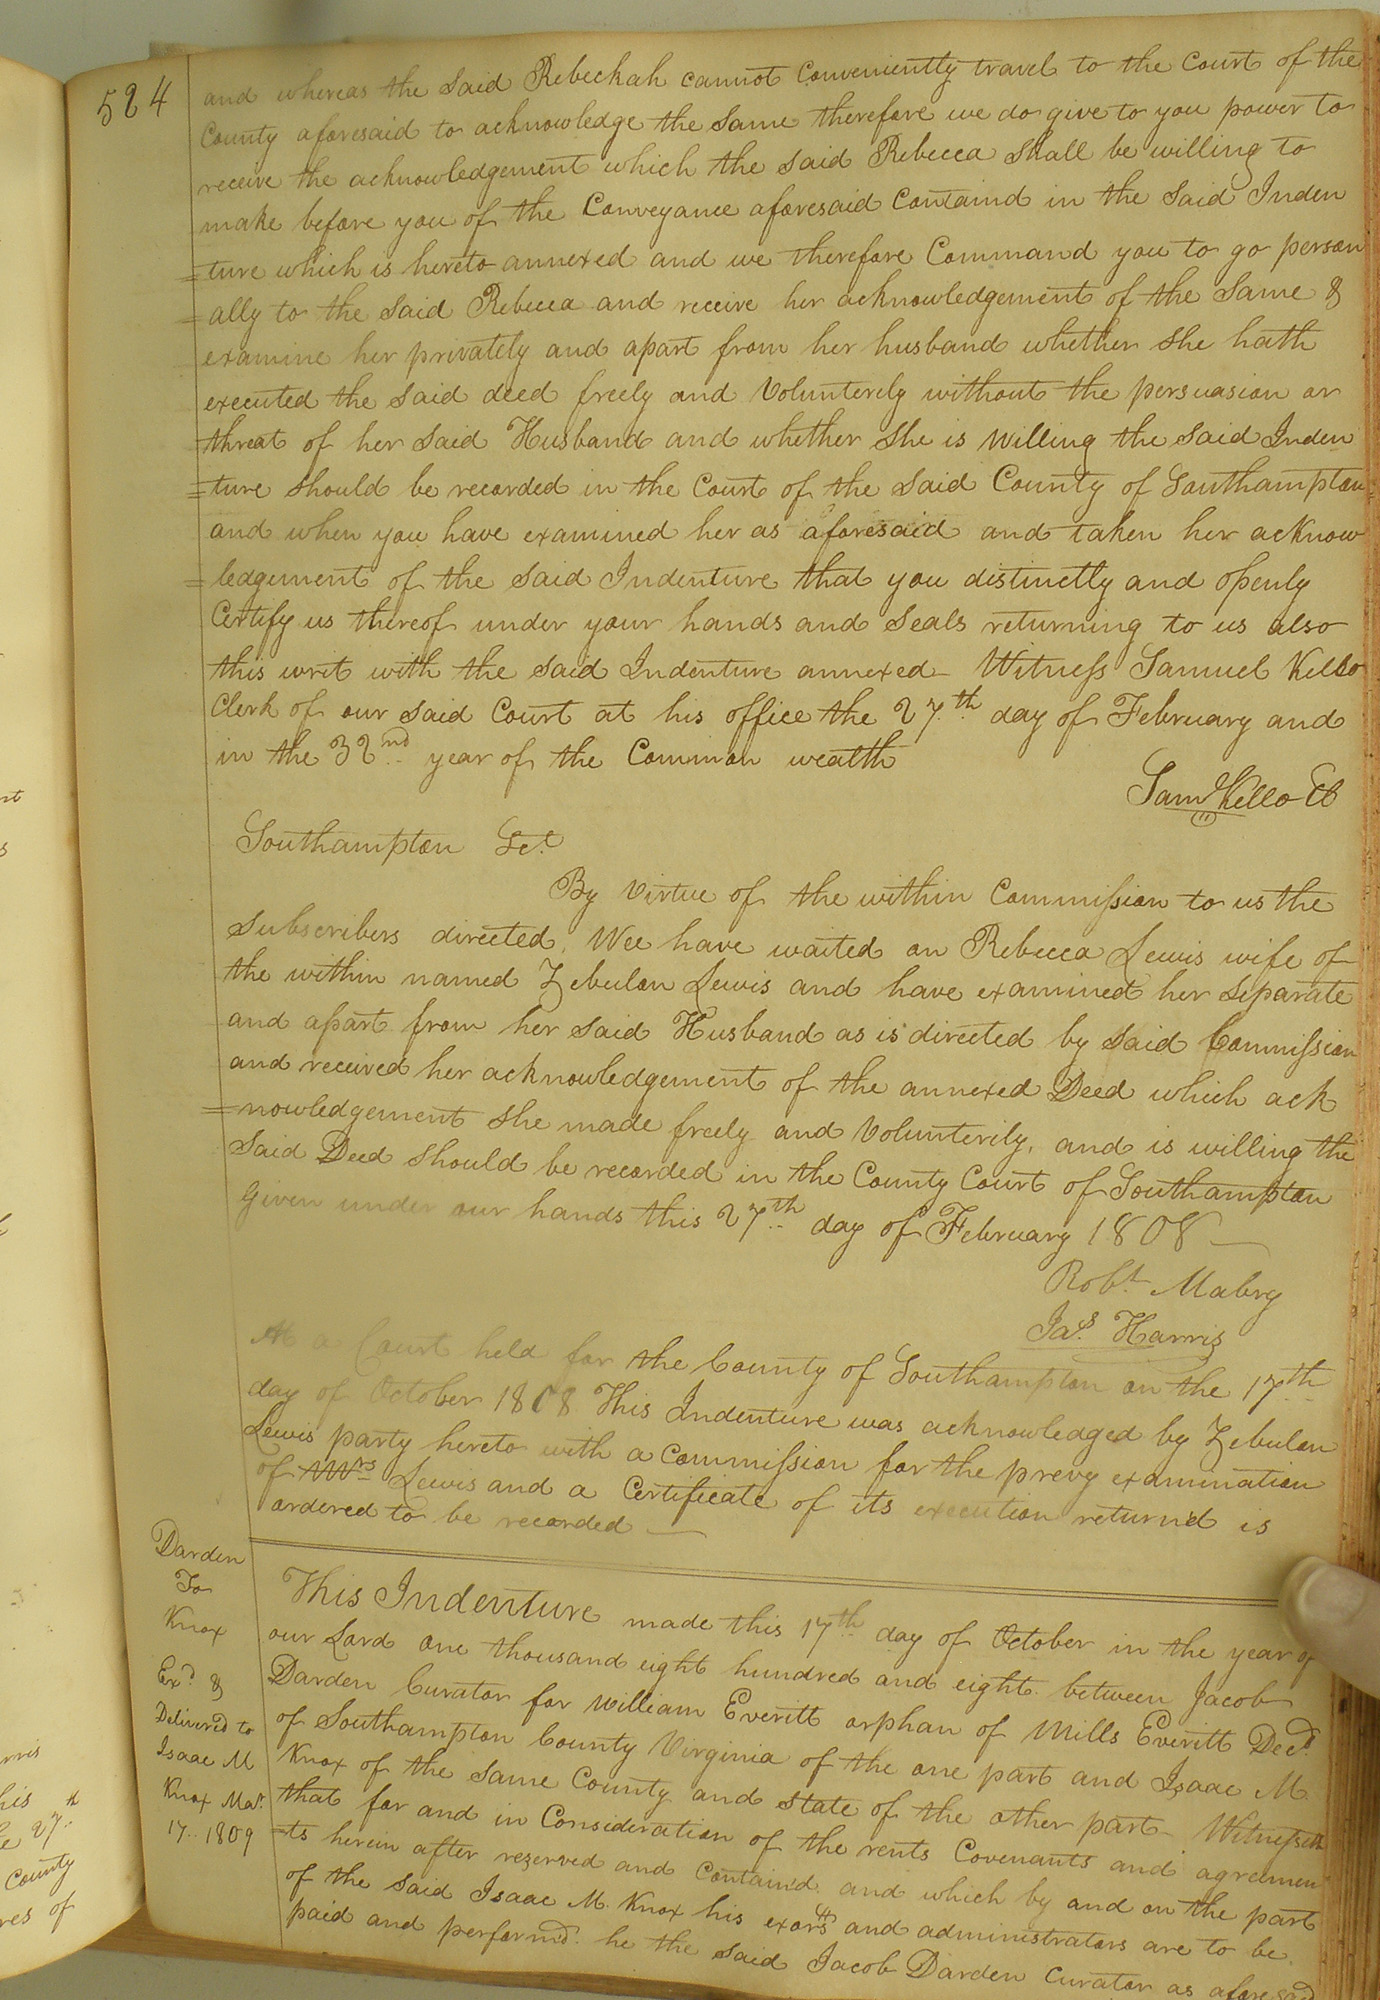 524
and whereas the said Rebeckah cannot Conveniently travel to the Court of the
County aforesaid to acknowledge the same therefore we do give to you power to
receive the acknowledgement which the said Rebecca shall be willing to
make before you of the Conveyance aforesaid Containd in the said Inden
=ture which is hereto annexed and we therefore Command you to go person
=ally to the said Rebecca and receive her acknowledgement of the same &
examine her privately and apart from her husband whether she hath
executed the said deed freely and Volunterely without the persuasion or
threat of her said Husband and whether she is willing the said Inden
=ture should be recorded in the Court of the said County of Southampton
and when you have examined her as aforesaid and taken her acknow
=ledgement of the said Indenture that you distinctly and openly
Certify us thereof under your hands and seals returning to us also
this writ with the said Indenture annexed - Witness Samuel Kello
Clerk of our said Court at his office the 27.th day of February and
in the 32nd year of the Common wealth
Saml Kello Cl
Southampton Sct.
By Virtue of the within Commission to us the
subscribers directed. Wee have waited on Rebecca Lewis wife of
the within named Zebulon Lewis and have examined her separate
and apart from her said Husband as is directed by said Commission
and received her acknowledgement of the annexed Deed which ack
=nowledgement she made freely and Volunterily, and is willing the
said Deed should be recorded in the County Court of Southampton
Given under our hands this 27th day of February 1808
Robt. Mabry
Jas. Harris
At a Court held for the County of Southampton on the 17th
day of October 1808 This Indenture was acknowledged by Zebulon
Lewis party hereto with a Commission for the prevy examination
of Mrs Lewis and a Certificate of its execution return'd is
ordered to be recorded
Darden
To
Knox
Exd. &
Delivered to
Isaac M
Knox Mar.
17.. 1809
This Indenture made this 17th day of October in the year of
our Lord one thousand eight hundred and eight between Jacob
Darden Curator for William Everitt orphan of Mills Everitt Decd.
of Southampton County Virginia of the one part and Isaac M
Knox of the same County and state of the other part - Witnesseth
that for and in Consideration of the rents Covenants and agreemen
=ts herein after reserved and Contain'd and which by and on the part
of the said Isaac M. Knox his exors and administrators are to be
paid and perform'd. he the said Jacob Darden Curator as aforesaid
his
27th
County
of